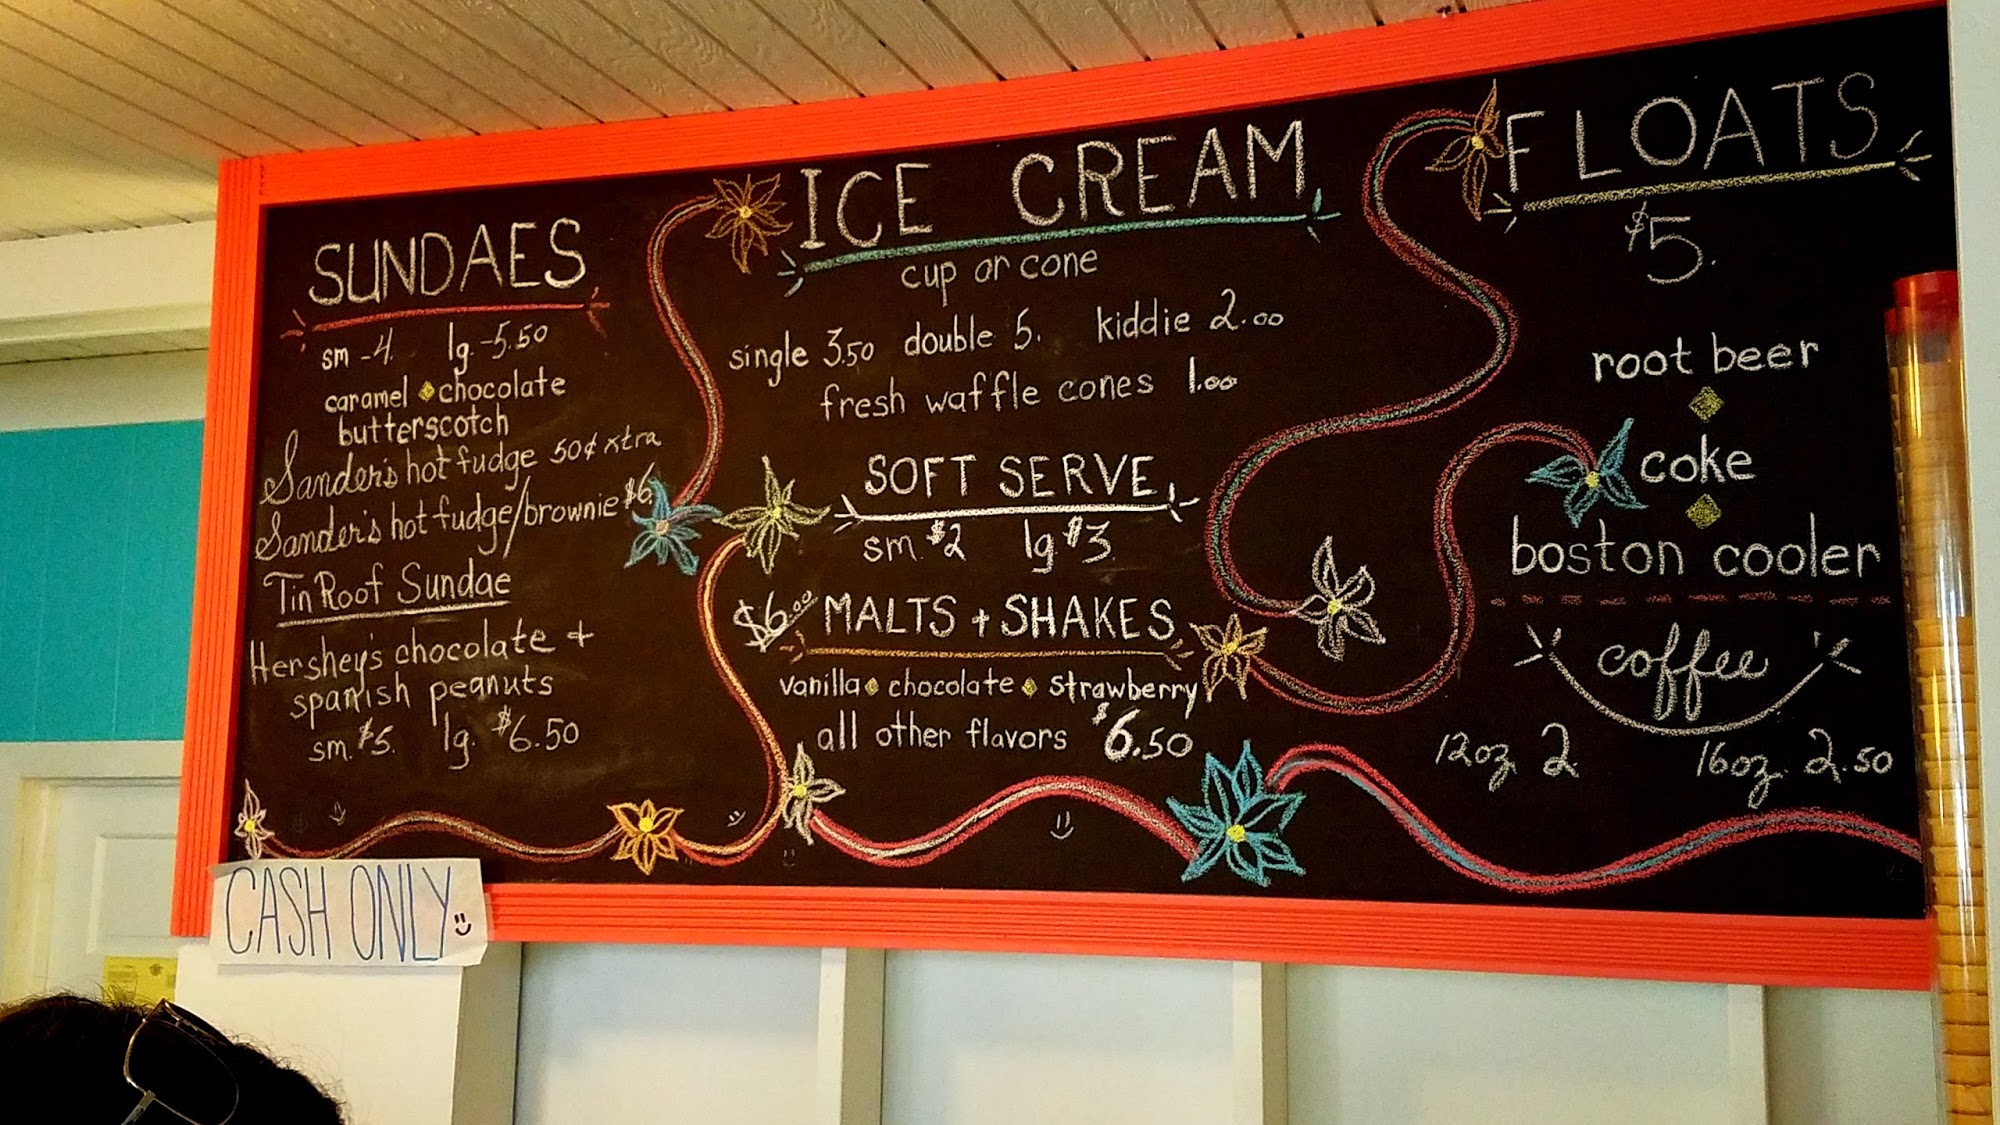 SUNDAES
sm - 4. lg. - 5.50
caramel chocolate
butterscotch
Sander's hot fudge 50¢ xtra
Sander's hot fudge/brownie $6.
Tin Roof Sundae
Hershey's chocolate +
spanish peanuts
sm. $5. lg. $6.50
ICE CREAM
cup or cone
single 3.50 double 5. kiddie 2.00
fresh waffle cones 1.00
SOFT SERVE
sm. $2 lg $3
$6.00 MALTS + SHAKES
vanilla chocolate strawberry
all other flavors $6.50
FLOATS
$5.
root beer
coke
boston cooler
coffee
12oz. 2 16oz. 2.50
CASH ONLY